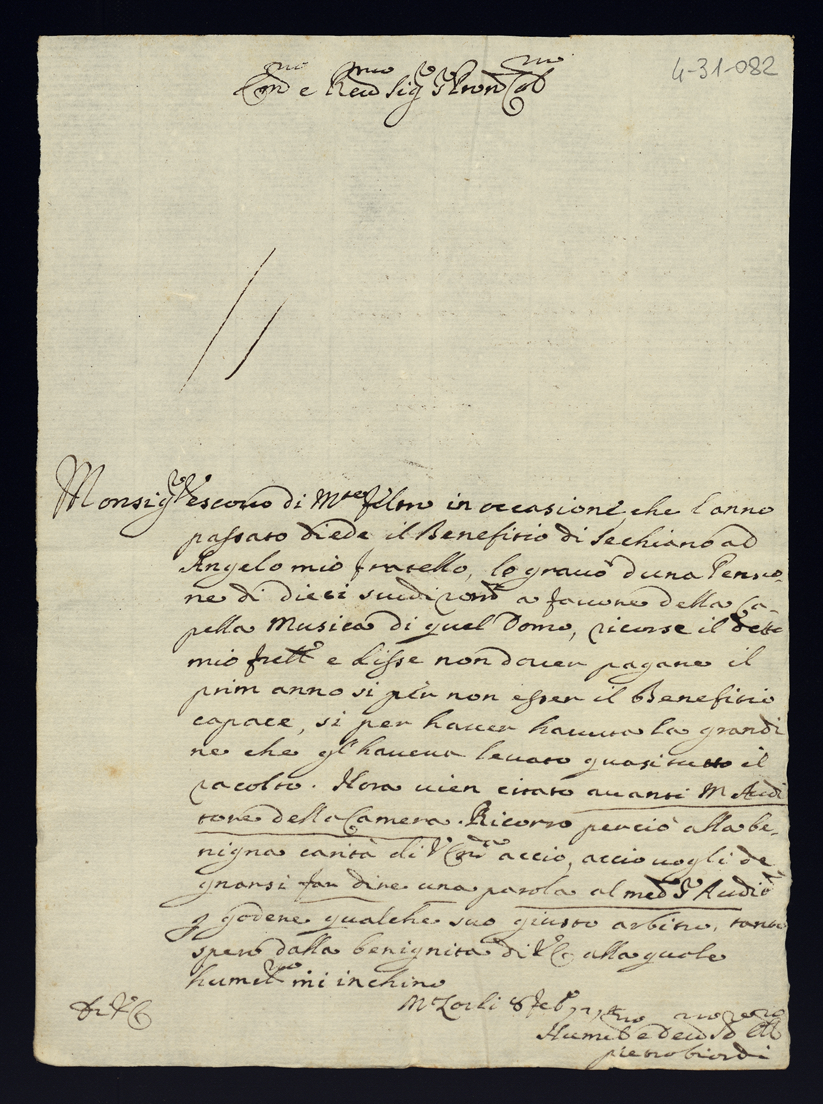 4-31-082
Em.mo e Rev.mo Sig.r P.ron Col.mo
Monsig.r Vescovo di M.te feltro in occasione, che l'anno
passato diede il Benefitio di Sechiano ad
Angelo mio fratello, lo gravò d'una Pensio-
ne di dieci scudi a favore della Ca-
pella Musica di quel Domo, ricorse il detto
mio frett.o e disse non dover pagare il
prim anno si per non esser il Benefitio
capace, si per haver havuta la grandi
ne che gl'haveva levato quasi tutto il
racolto. Hora vien citato avanti M. Audi
tore della Camera. Ricorro perciò alla be-
nigna carità di V. Em.za acciò, acciò vogli de
gnarsi far dire una parola al med.o S.r Audit.e
p godere qualche suo giusto arbitrio, tanto
spero dalla benignita di V.E. alla quale
humil.te mi inchino
Di V.E.
8 Feb.
Humil.mo e Dev.mo
pietro biordi